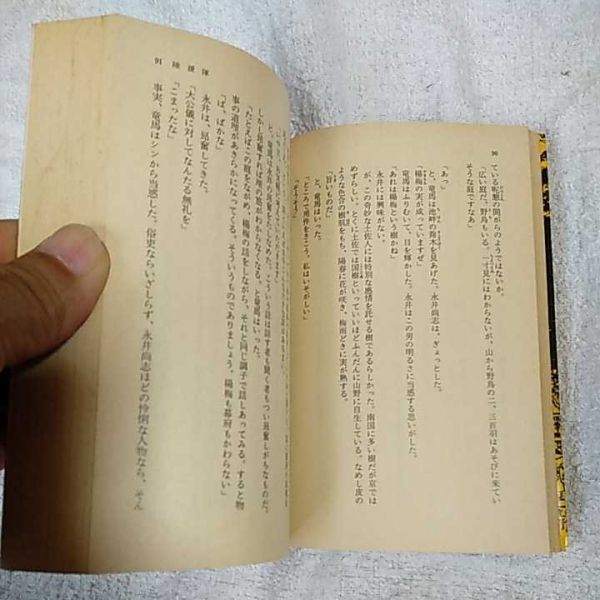 90
ている配慮の間からのようではないか。
「広い庭だ。野鳥もいる。一寸見にはわからないが、山から野鳥の二、三百羽はあそびに来てい
そうな庭ですなあ」
「あ」
と、竜馬は池畔の喬木を見あげた。永井尚志は、ぎょっとした。
楊梅の実が成っていますぞ」
竜馬はふりむいて、目を輝かした。永井はこの男の明るさに当惑する思いがした。
「あれは楊梅という樹かね」
永井には興味がない。
が、この奇妙な土佐人には特別な感情を託せる樹であるらしかった。南国に多い樹だが京では
めずらしい。とくに土佐では国樹といっていいほどふんだんに山野に自生している。なめし皮の
ような色合の樹肌をもち、陽春に花が咲き、梅雨どきに実が熟する。
「旨いものだ」
と、竜馬はいった。
「ところで用件をきこう。私はいそがしい」
「そうそう」
91 陸援隊
と、竜馬は永井の昂奮をたしなめた。こういう話は話す者も聞く者もつい昂奮しがちなものだ。
しかし昂奮すれば理の筋がわからなくなる。と竜馬はいった。
「たとえばこの庭をながめ、楊梅の話をしながら、それと同じ調子で話しあってみる。すると物
事の道理があきらかになってくる。そういうものでありましょう。楊梅も幕府もかわらない」
「ば、ばかな」
永井は、昂奮してきた。
「大公儀に対してなんたる無礼を」
「こまったな」
事実、竜馬はシンから当惑した。俗吏ならいざしらず、永井尚志ほどの怜悧な人物なら、そん